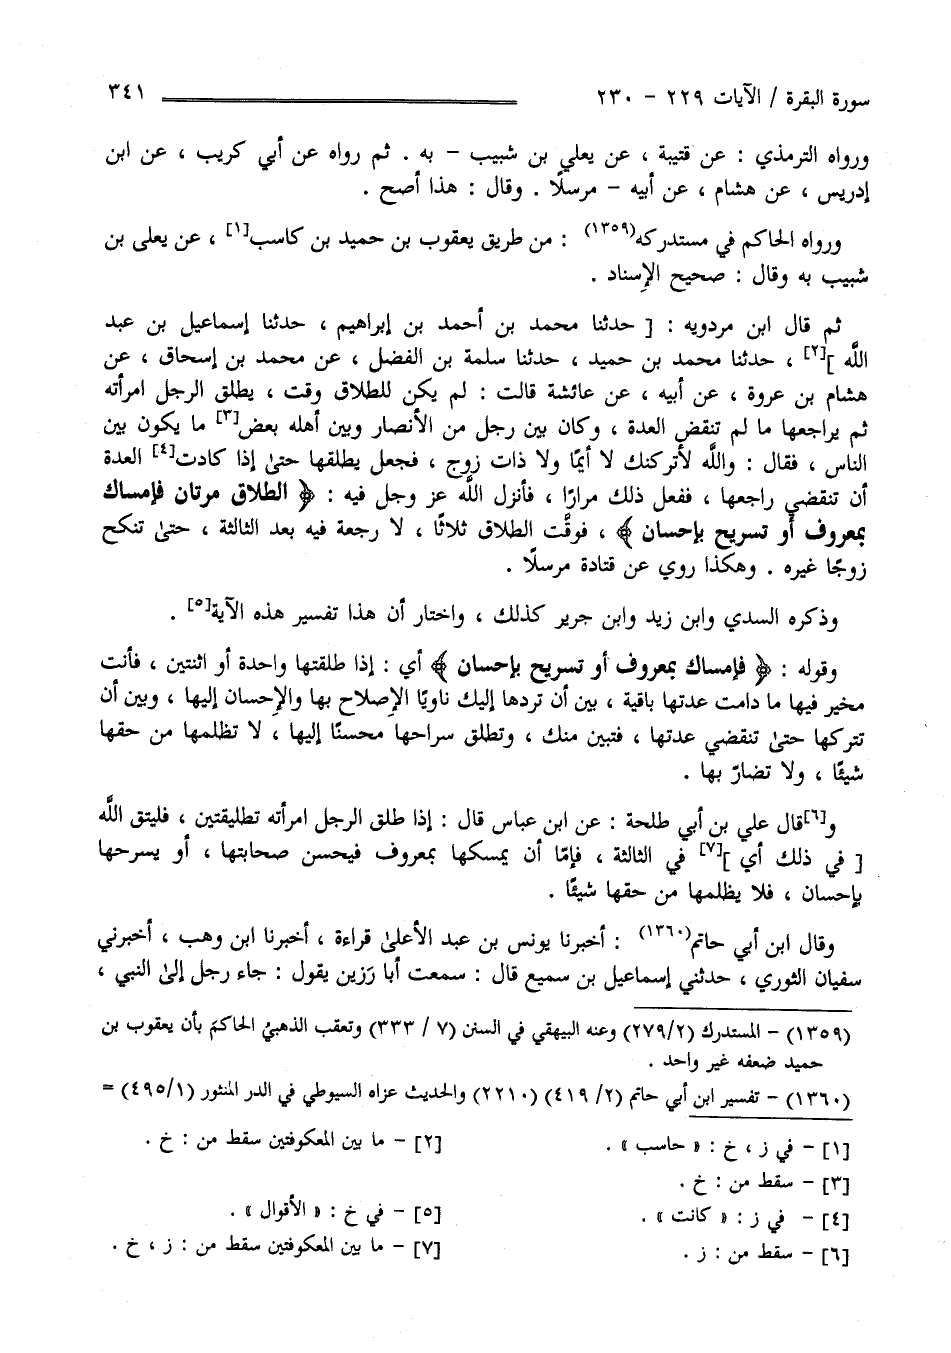 سورة البقرة / الآيات ٢٢٩ - ٢٣٠ ٣٤١
ورواه الترمذي : عن قتيبة ، عن يعلي بن شبيب - به . ثم رواه عن أبي كريب ، عن ابن
إدريس ، عن هشام ، عن أبيه - مرسلًا . وقال : هذا أصح .
ورواه الحاكم في مستدركه(١٣٥٩) : من طريق يعقوب بن حميد بن كاسب[١] ، عن يعلى بن
شبيب به وقال : صحيح الإسناد .
ثم قال ابن مردويه : [ حدثنا محمد بن أحمد بن إبراهيم ، حدثنا إسماعيل بن عبد
اللَّه ][٢] ، حدثنا محمد بن حميد ، حدثنا سلمة بن الفضل ، عن محمد بن إسحاق ، عن
هشام بن عروة ، عن أبيه ، عن عائشة قالت : لم يكن للطلاق وقت ، يطلق الرجل امرأته
ثم يراجعها ما لم تنقض العدة ، وكان بين رجل من الأنصار وبين أهله بعض[٣] ما يكون بين
الناس ، فقال : واللَّه لأتركنك لا أيمًا ولا ذات زوج ، فجعل يطلقها حتىٰ إذا كادت[٤] العدة
أن تنقضي راجعها ، ففعل ذلك مرارًا ، فأنزل اللَّه عز وجل فيه : ﴿ الطلاق مرتان فإمساك
بمعروف أو تسريح بإحسان ﴾ ، فوقَّت الطلاق ثلاثًا ، لا رجعة فيه بعد الثالثة ، حتىٰ تنكح
زوجًا غيره . وهكذا روي عن قتادة مرسلًا .
وذكره السدي وابن زيد وابن جرير كذلك ، واختار أن هذا تفسير هذه الآية[٥] .
وقوله : ﴿ فإمساك بمعروف أو تسريح بإحسان ﴾ أي : إذا طلقتها واحدة أو اثنتين ، فأنت
مخير فيها ما دامت عدتها باقية ، بين أن تردها إليك ناويًا الإصلاح بها والإحسان إليها ، وبين أن
تتركها حتىٰ تنقضي عدتها ، فتبين منك ، وتطلق سراحها محسنًا إليها ، لا تظلمها من حقها
شيئًا ، ولا تضارّ بها .
و[٦]قال علي بن أبي طلحة : عن ابن عباس قال : إذا طلق الرجل امرأته تطليقتين ، فليتق اللَّه
[ في ذلك أي ][٧] في الثالثة ، فإمّا أن يمسكها بمعروف فيحسن صحابتها ، أو يسرحها
بإحسان ، فلا يظلمها من حقها شيئًا .
وقال ابن أبي حاتم(١٣٦٠) : أخبرنا يونس بن عبد الأعلىٰ قراءة ، أخبرنا ابن وهب ، أخبرني
سفيان الثوري ، حدثني إسماعيل بن سميع قال : سمعت أبا رَزين يقول : جاء رجل إلىٰ النبي ،
(١٣٥٩) - المستدرك (٢٧٩/٢) وعنه البيهقي في السنن (٧ / ٣٣٣) وتعقب الذهبيُ الحاكمَ بأن يعقوب بن
حميد ضعفه غير واحد .
(١٣٦٠) - تفسير ابن أبي حاتم (٢/ ٤١٩) (٢٢١٠) والحديث عزاه السيوطي في الدر المنثور (٤٩٥/١) =
[١] - في ز ، خ : « حاسب » . [٢] - ما بين المعكوفتين سقط من : خ .
[٣] - سقط من : خ .
[٤] - في ز : « كانت » . [٥] - في خ : « الأقوال » .
[٦] - سقط من : ز . [٧] - ما بين المعكوفتين سقط من : ز ، خ .